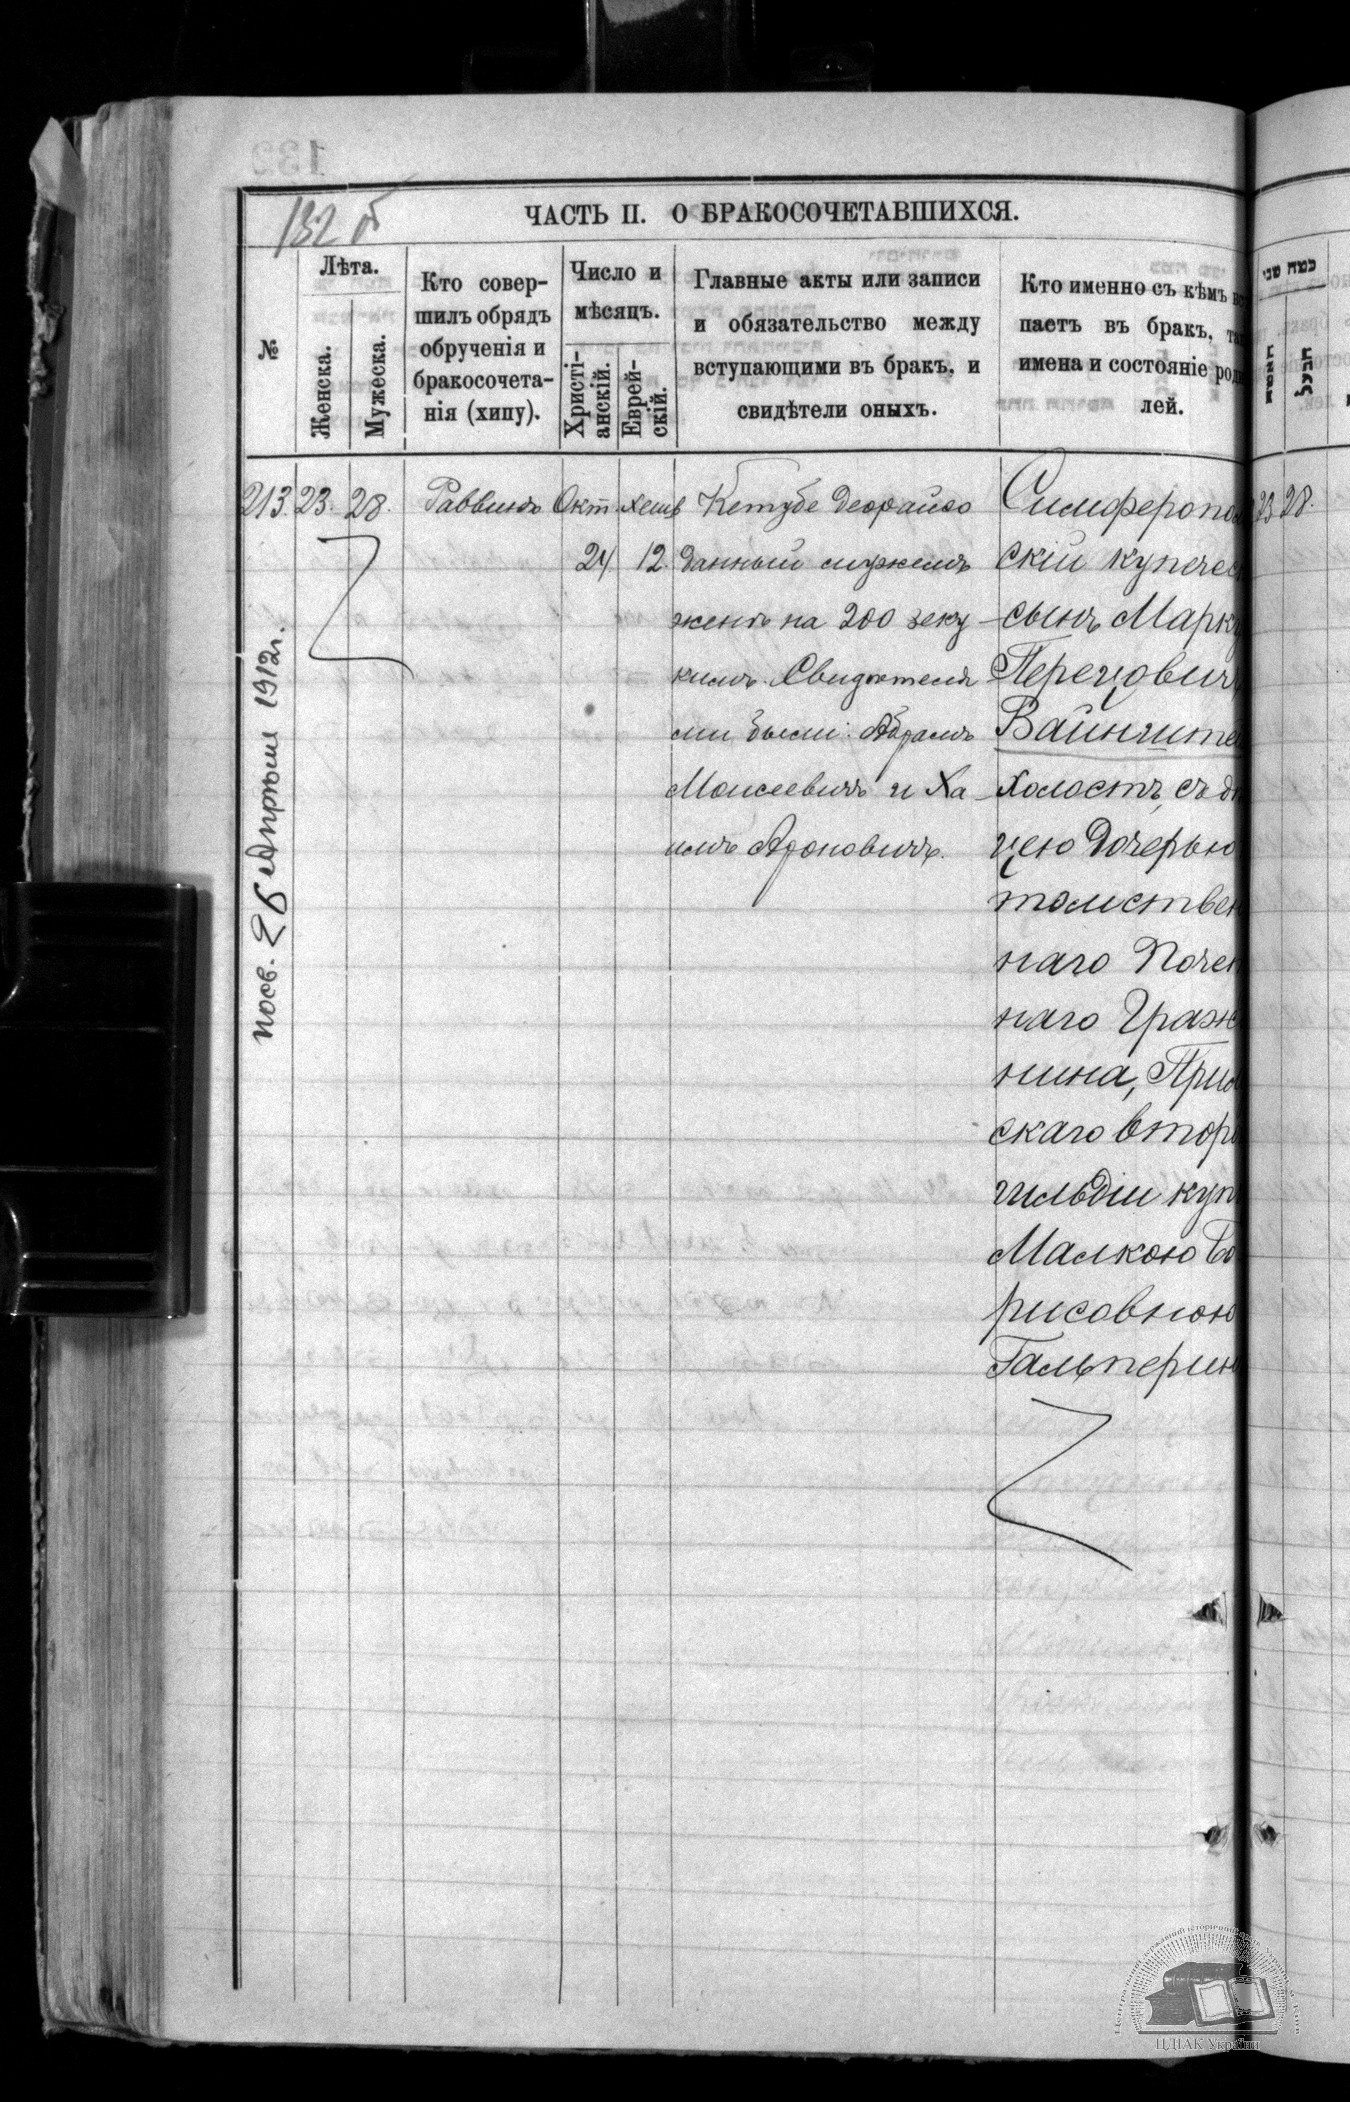 132 об
ЧАСТЬ II. О БРАКОСОЧЕТАВШИХСЯ.
№
Лѣта.
Женска.
Мужеска.
Кто совер-
шилъ обрядъ
обрученія и
бракосочета-
нія (хипу).
Число и
мѣсяцъ.
Христі-
анскій.
Еврей-
скій.
Главные акты или записи
и обязательство между
вступающими въ бракъ, и
свидѣтели оныхъ.
Кто именно съ кѣмъ вс
паетъ въ бракъ, та
имена и состояніе род
лей.
כמה שני
האשה
הבעל
213. 23. 28. Раввинъ Окт. хешв
24 12.
Кетубе деорайсо
данный мужемъ
женѣ на 200 зеку
кимъ. Свидѣтеля
ми были: Абрамъ
Моисеевичъ и Ха
имъ Ароновичъ.
Симферопол
скій купечес
сынъ Марк
Перецовичъ
Вайнште
холостъ, съ дѣ
цею дочерью
томствен
наго Почет
наго Граж
нина,
скаго втор
гильдіи куп
Малкою Бо
рисовною
Гальперин
23 28.
посв. 26 Апрѣля 1912г.
ЦДІАК України